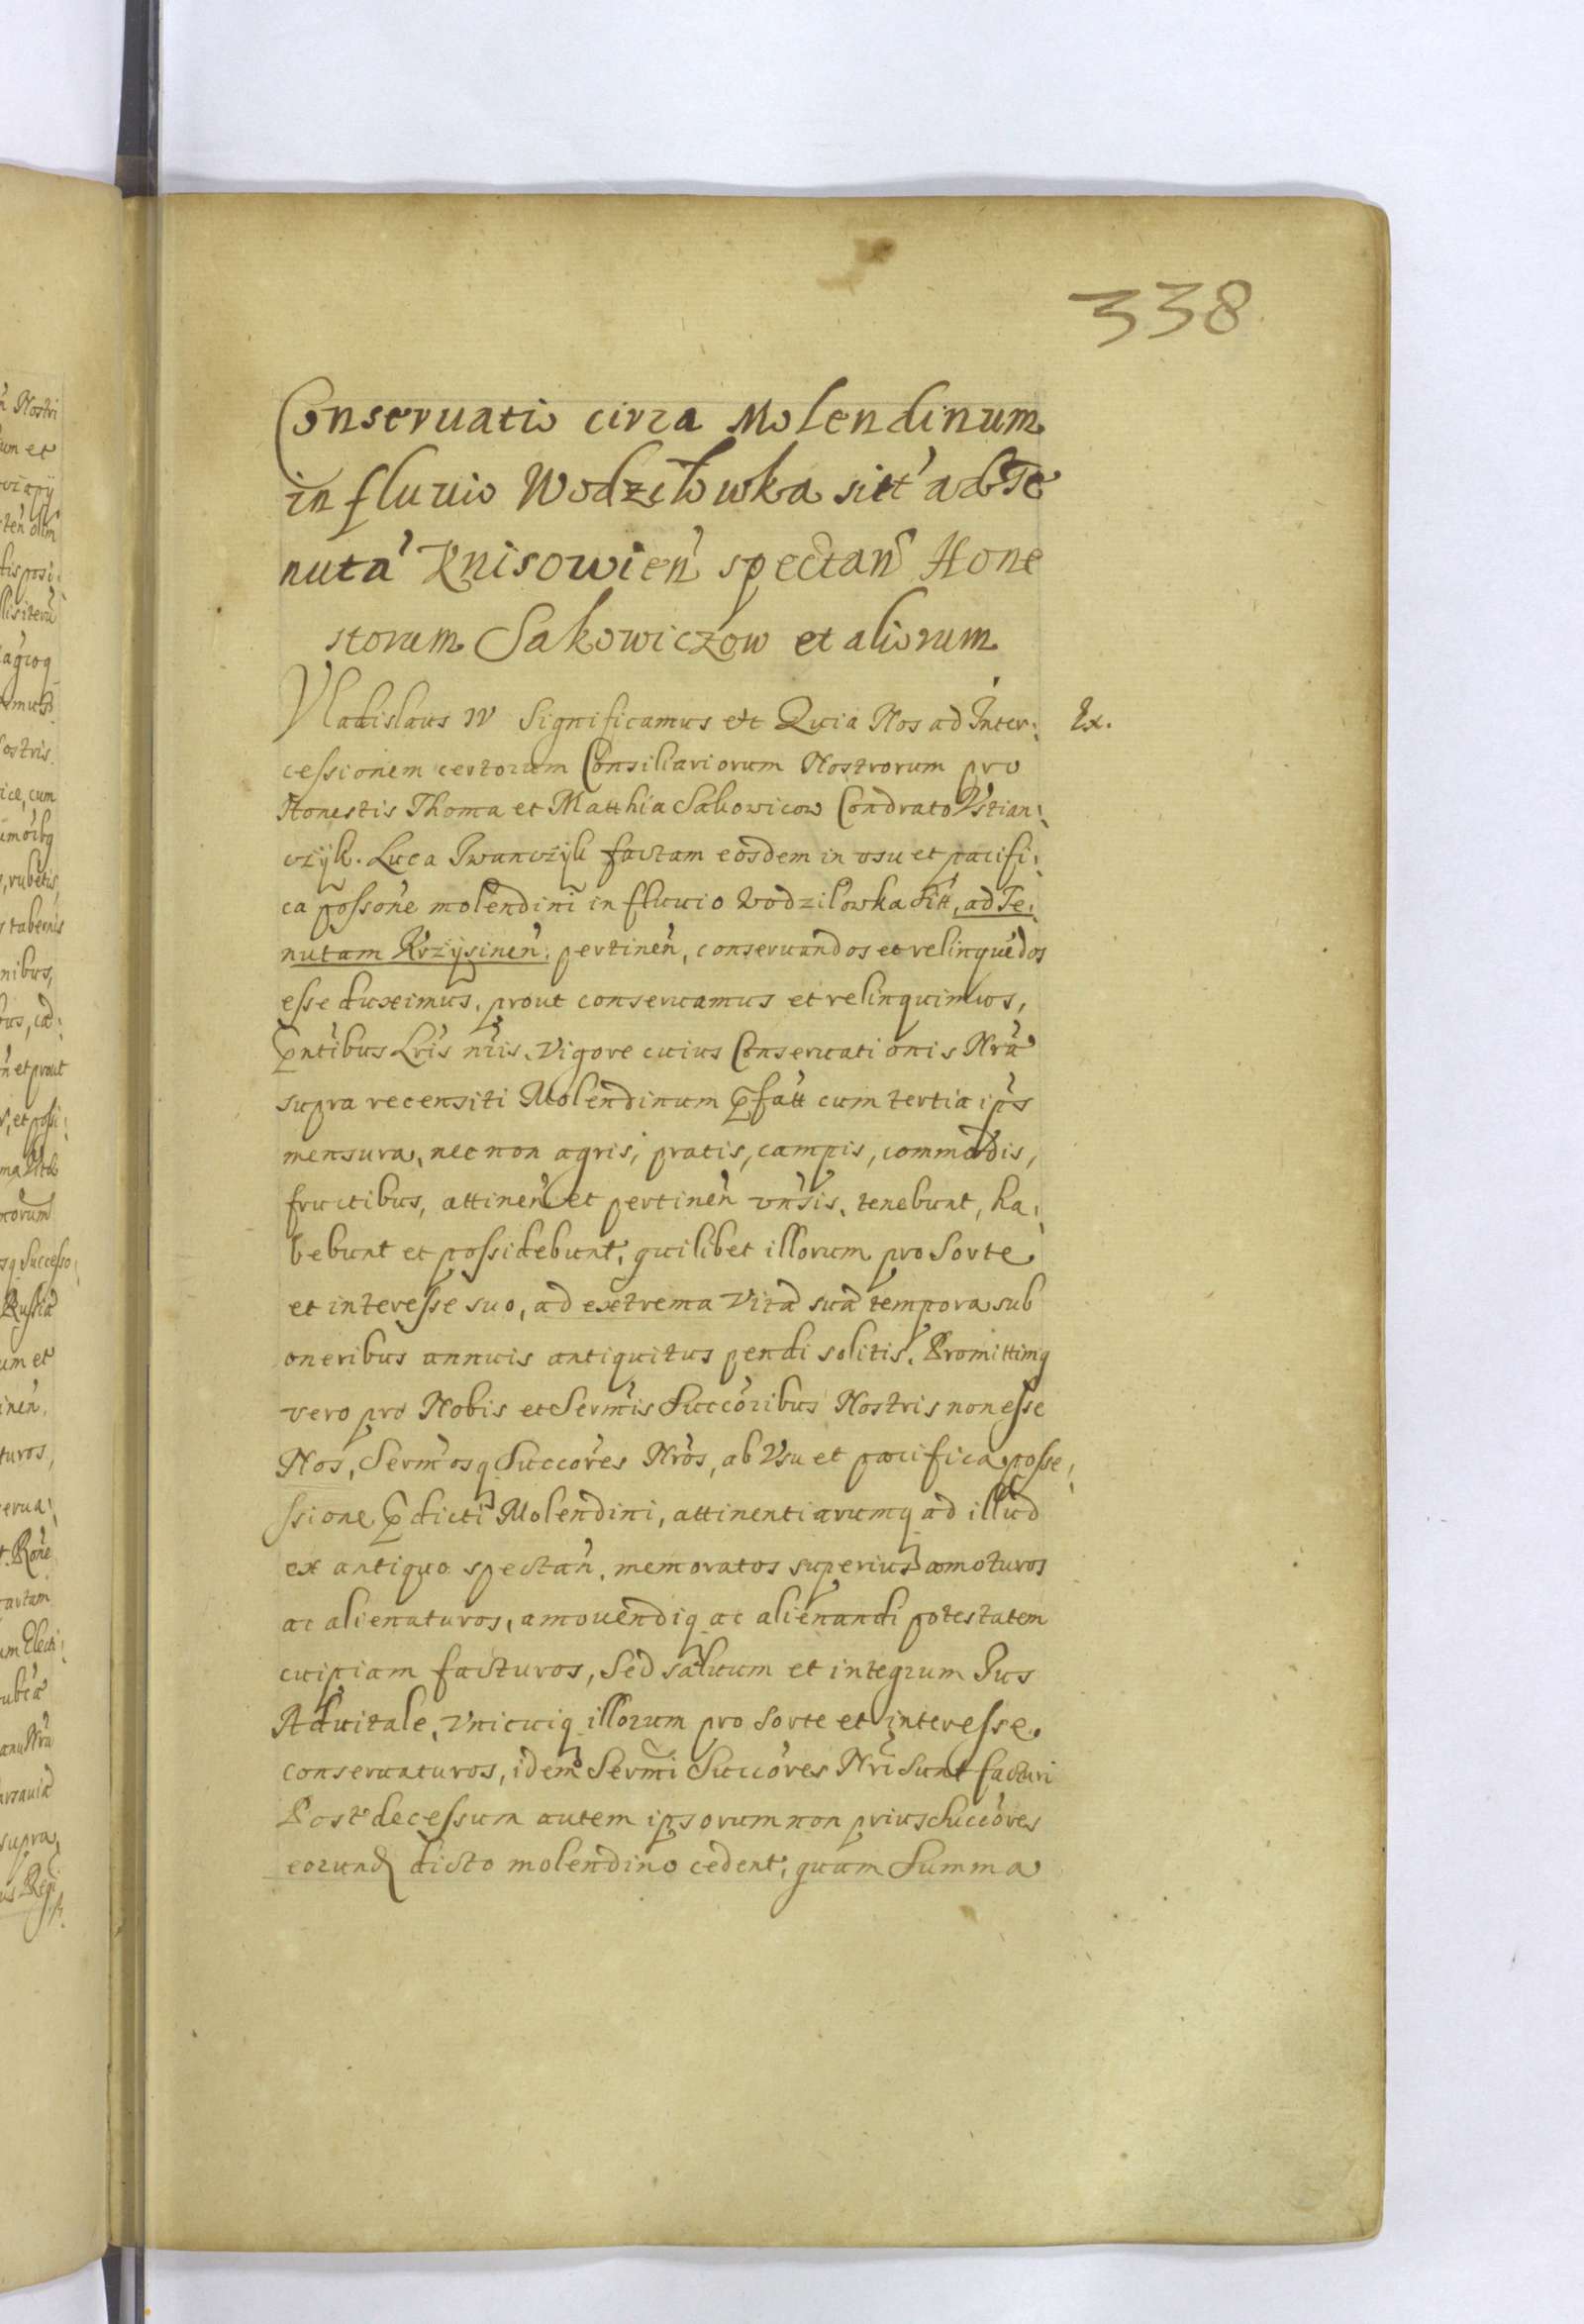 338
Conseruatio circa Molendinum
in fluuio Wodziłowka sitt' ad Te
nuta' Knisowien' spectan' Hone
storum Sakowiczow et aliorum
Vladislaus IV Significamus ett Quia Nos ad Inter: Ex.
cessionem certorum Consiliariorum Nostrorum pro
Honestis Thoma et Matthia Sakowicow Condrato Vstian:
czÿk. Luca Iwanczÿk factam eosdem in vsu et pacifi:
ca possone molendini in fluuio Wodzilowka sitt, ad Te:
nutam Krzÿsinen: pertinen, conseruandos et relinquedos
esse duximus, prout conseruamus et relinquimus,
pntibus Lris nris. Vigore cuius Conseruationis Nra
supra recensiti Molendinum pfatt cum tertia ips
mensura, nec non agris, pratis, campis, commodis,
fructibus, attinen et pertinen vnsis, tenebunt, ha:
bebunt et possidebunt, quilibet illorum pro Sorte
et interesse suo, ad extrema Vita sua tempora sub
oneribus annuis antiquitus pendi solitis. Promittimq
vero pro Nobis et Sermis Succoribus Nostris non esse
Nos, Sermosq Succores Nros, ab Vsu et pacifica posse:
ssione pdicti Molendini, attinentiarumq ad illud
ex antiquo spectan, memoratos superius amoturos
ac alienaturos, amouendiq ac alienandi potestatem
cuipiam facturos, Sed saluum et integrum Ius
Aduitale, Vnicuiq illorum pro Sorte et interesse
conseruaturos, idem Sermi Succores Nri Sunt facturi
Post decessum autem ipsorum non prius Succores
eorund dicto molendino cedent, quam Summa